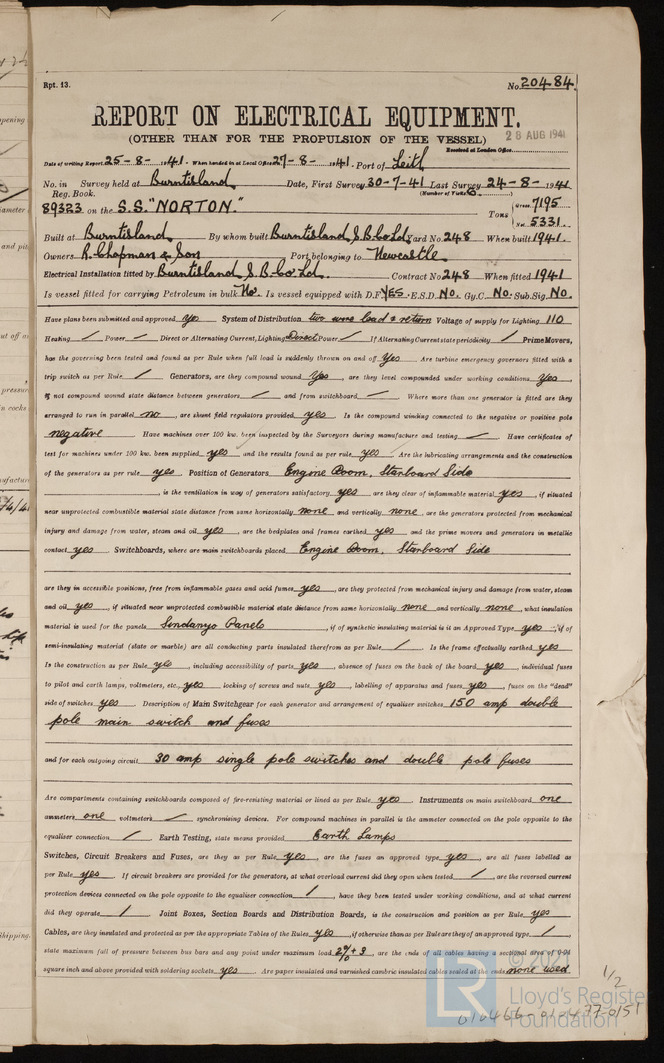 Rpt. 13. No. 20484
REPORT ON ELECTRICAL EQUIPMENT.
(OTHER THAN FOR THE PROPULSION OF THE VESSEL) 28 AUG 1941
Received at London Office
Date of writing Report 25-8-1941. When handed in at Local Office 27-8-1941. Port of Leith
No. in Survey held at Burntisland Date, First Survey 30-7-41 Last Survey 24-8-1941
Reg. Book. (Number of Visits 6.)
89323 on the S.S. "NORTON." Tons Gross 7195 Net 5331.
Built at Burntisland By whom built Burntisland S.B. Co Ld. Yard No. 248 When built 1941.
Owners R. Chapman & Son Port belonging to Newcastle
Electrical Installation fitted by Burntisland S.B. Co Ld. Contract No. 248 When fitted 1941
Is vessel fitted for carrying Petroleum in bulk No. Is vessel equipped with D.F. YES. E.S.D. No. Gy.C. No. Sub.Sig. No.
Have plans been submitted and approved yes System of Distribution two wire lead & return Voltage of supply for Lighting 110
Heating / Power / Direct or Alternating Current, Lighting Direct Power / If Alternating Current state periodicity / Prime Movers,
has the governing been tested and found as per Rule when full load is suddenly thrown on and off Yes Are turbine emergency governors fitted with a
trip switch as per Rule / Generators, are they compound wound Yes, are they level compounded under working conditions Yes,
if not compound wound state distance between generators / and from switchboard / Where more than one generator is fitted are they
arranged to run in parallel no, are shunt field regulators provided yes Is the compound winding connected to the negative or positive pole
negative Have machines over 100 kw. been inspected by the Surveyors during manufacture and testing / Have certificates of
test for machines under 100 kw. been supplied yes and the results found as per rule yes Are the lubricating arrangements and the construction
of the generators as per rule yes Position of Generators Engine Room, Starboard Side
, is the ventilation in way of generators satisfactory yes are they clear of inflammable material yes, if situated
near unprotected combustible material state distance from same horizontally none and vertically none, are the generators protected from mechanical
injury and damage from water, steam and oil yes, are the bedplates and frames earthed yes and the prime movers and generators in metallic
contact yes Switchboards, where are main switchboards placed Engine Room, Starboard Side
are they in accessible positions, free from inflammable gases and acid fumes yes, are they protected from mechanical injury and damage from water, steam
and oil yes, if situated near unprotected combustible material state distance from same horizontally none and vertically none, what insulation
material is used for the panels Sindanyo Panels, if of synthetic insulating material is it an Approved Type yes, if of
semi-insulating material (slate or marble) are all conducting parts insulated therefrom as per Rule / Is the frame effectually earthed yes
Is the construction as per Rule yes, including accessibility of parts yes, absence of fuses on the back of the board yes, individual fuses
to pilot and earth lamps, voltmeters, etc. yes locking of screws and nuts yes, labelling of apparatus and fuses yes, fuses on the "dead"
side of switches yes Description of Main Switchgear for each generator and arrangement of equaliser switches 150 amp double
pole main switch and fuses
and for each outgoing circuit 30 amp single pole switches and double pole fuses
Are compartments containing switchboards composed of fire-resisting material or lined as per Rule yes Instruments on main switchboard one
ammeters one voltmeters / synchronising devices. For compound machines in parallel is the ammeter connected on the pole opposite to the
equaliser connection / Earth Testing, state means provided Earth Lamps
Switches, Circuit Breakers and Fuses, are they as per Rule yes, are the fuses an approved type yes, are all fuses labelled as
per Rule yes If circuit breakers are provided for the generators, at what overload current did they open when tested /, are the reversed current
protection devices connected on the pole opposite to the equaliser connection /, have they been tested under working conditions, and at what current
did they operate / Joint Boxes, Section Boards and Distribution Boards, is the construction and position as per Rule yes
Cables, are they insulated and protected as per the appropriate Tables of the Rules yes, if otherwise than as per Rule are they of an approved type /
state maximum fall of pressure between bus bars and any point under maximum load 2% + 3, are the ends of all cables having a sectional area of 0.04
square inch and above provided with soldering sockets yes Are paper insulated and varnished cambric insulated cables sealed at the ends none used
1/2
© 2021
LR Lloyd's Register
Foundation
010466-010477-0151